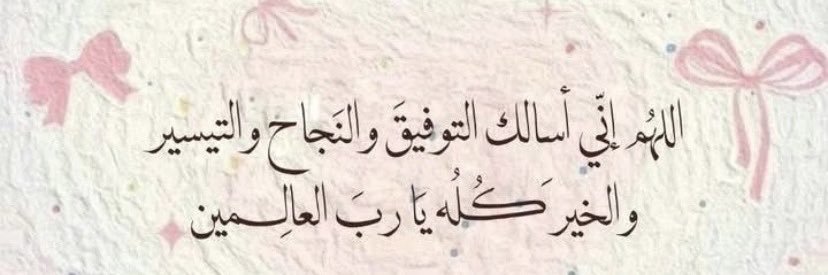 اللهُم إنّي أسالك التوفيقَ والنَجاح والتيسير
والخير كَـُله يَا ربَ العالِـمين